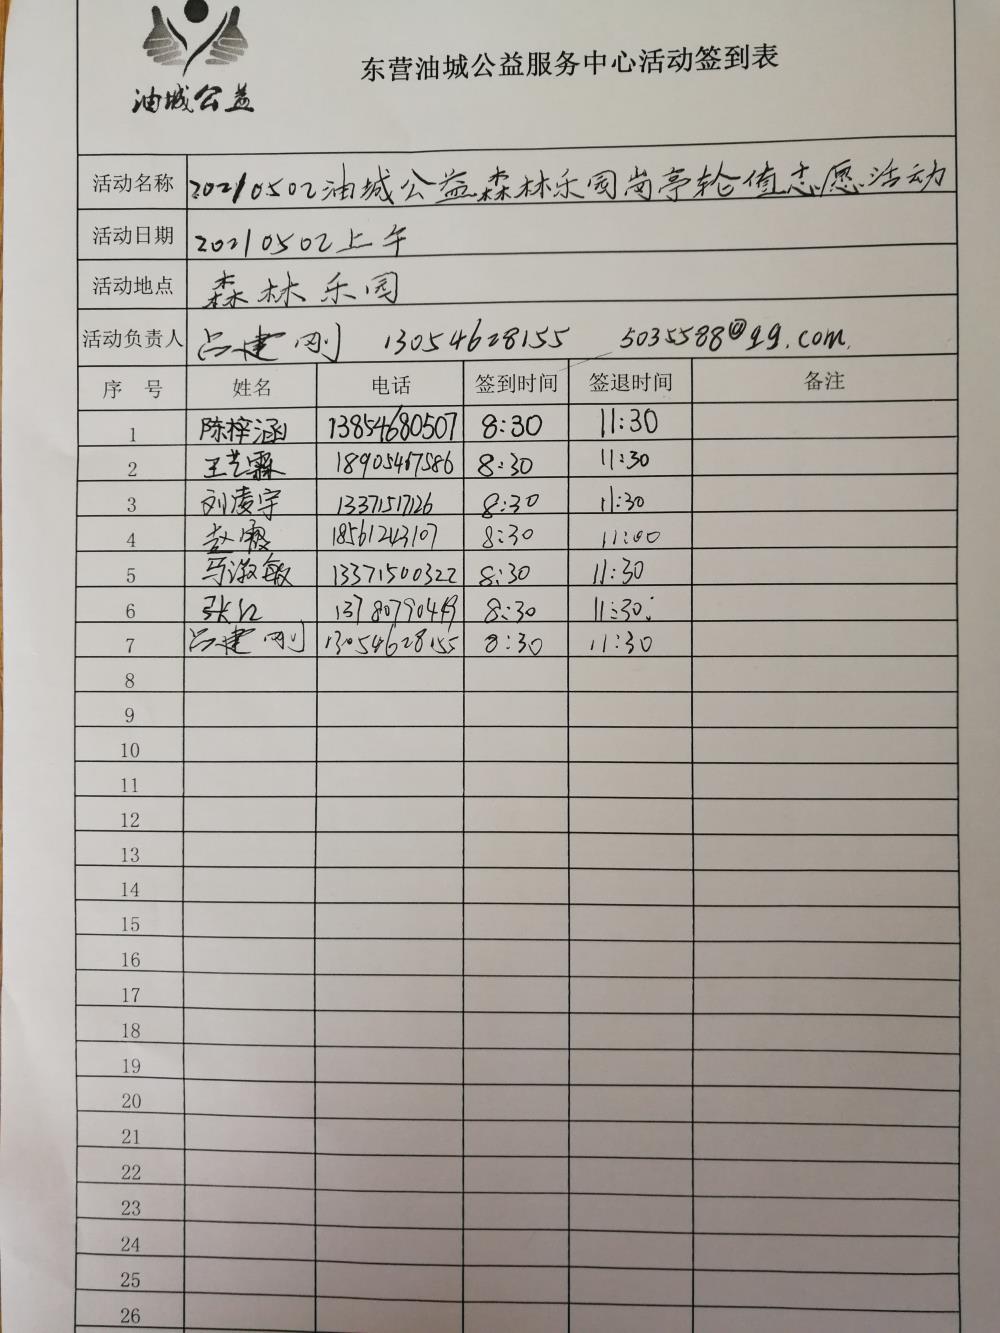 油城公益
东营油城公益服务中心活动签到表
活动名称 20210502油城公益森林乐园岗亭轮值志愿活动
活动日期 20210502上午
活动地点 森林乐园
活动负责人 吕建刚 13054628155 5035588@qq.com.
序 号 姓名 电话 签到时间 签退时间 备注
1 陈梓涵 13854680507 8:30 11:30
2 王艺霖 18905467586 8:30 11:30
3 刘凌宇 13371517126 8:30 11:30
4 赵霞 18561243107 8:30 11:00
5 马淑敏 13371500322 8:30 11:30
6 张红 13780790449 8:30 11:30
7 吕建刚 13054628155 8:30 11:30
8
9
10
11
12
13
14
15
16
17
18
19
20
21
22
23
24
25
26